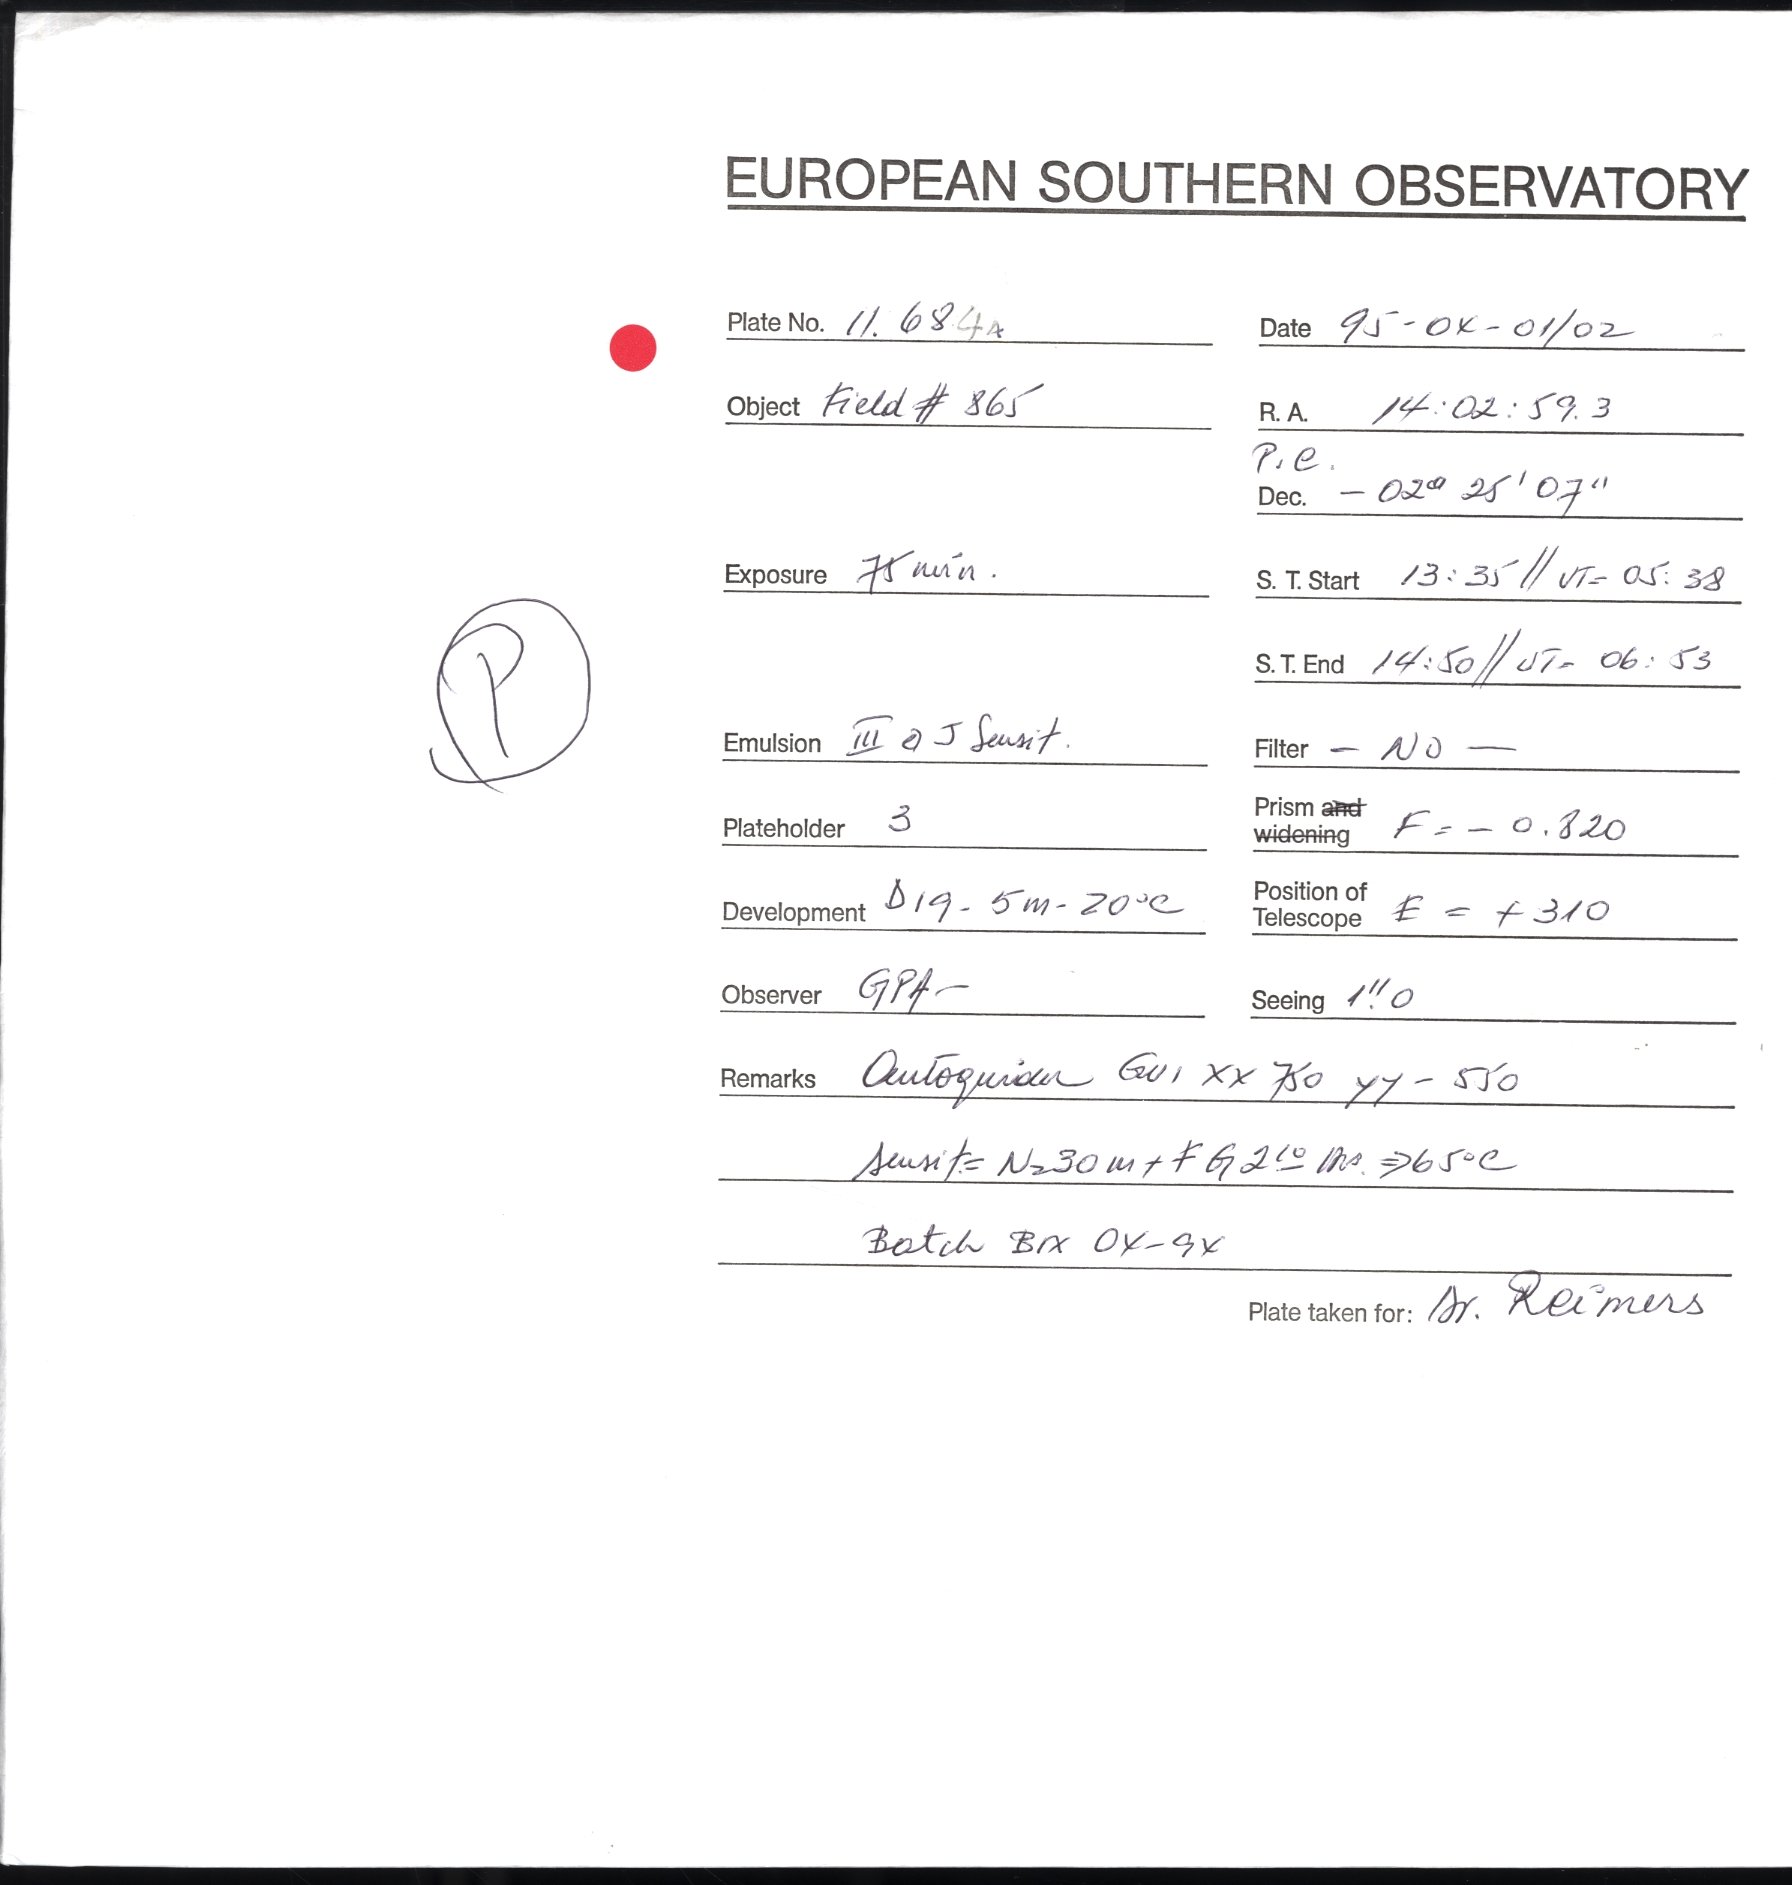 EUROPEAN SOUTHERN OBSERVATORY
Plate No. 11.684A
Date 95-04-01/02
Object Field # 865
R. A. 14:02:59.3
P.C.
Dec. – 02° 25' 07"
Exposure 75 min.
S. T. Start 13:35 // UT= 05:38
S. T. End 14:50 // UT= 06:53
P
Emulsion III a J Sensit.
Filter – NO –
Plateholder 3
Prism and widening F = – 0.820
Development D19 - 5m - 20°C
Position of Telescope E = + 310
Observer GPA –
Seeing 1".0
Remarks Autoguider GU1 XX 750 YY – 550
Sensit= N2 30m + FG 2 Hrs. => 65°C
Batch
Plate taken for: Dr. Reimers